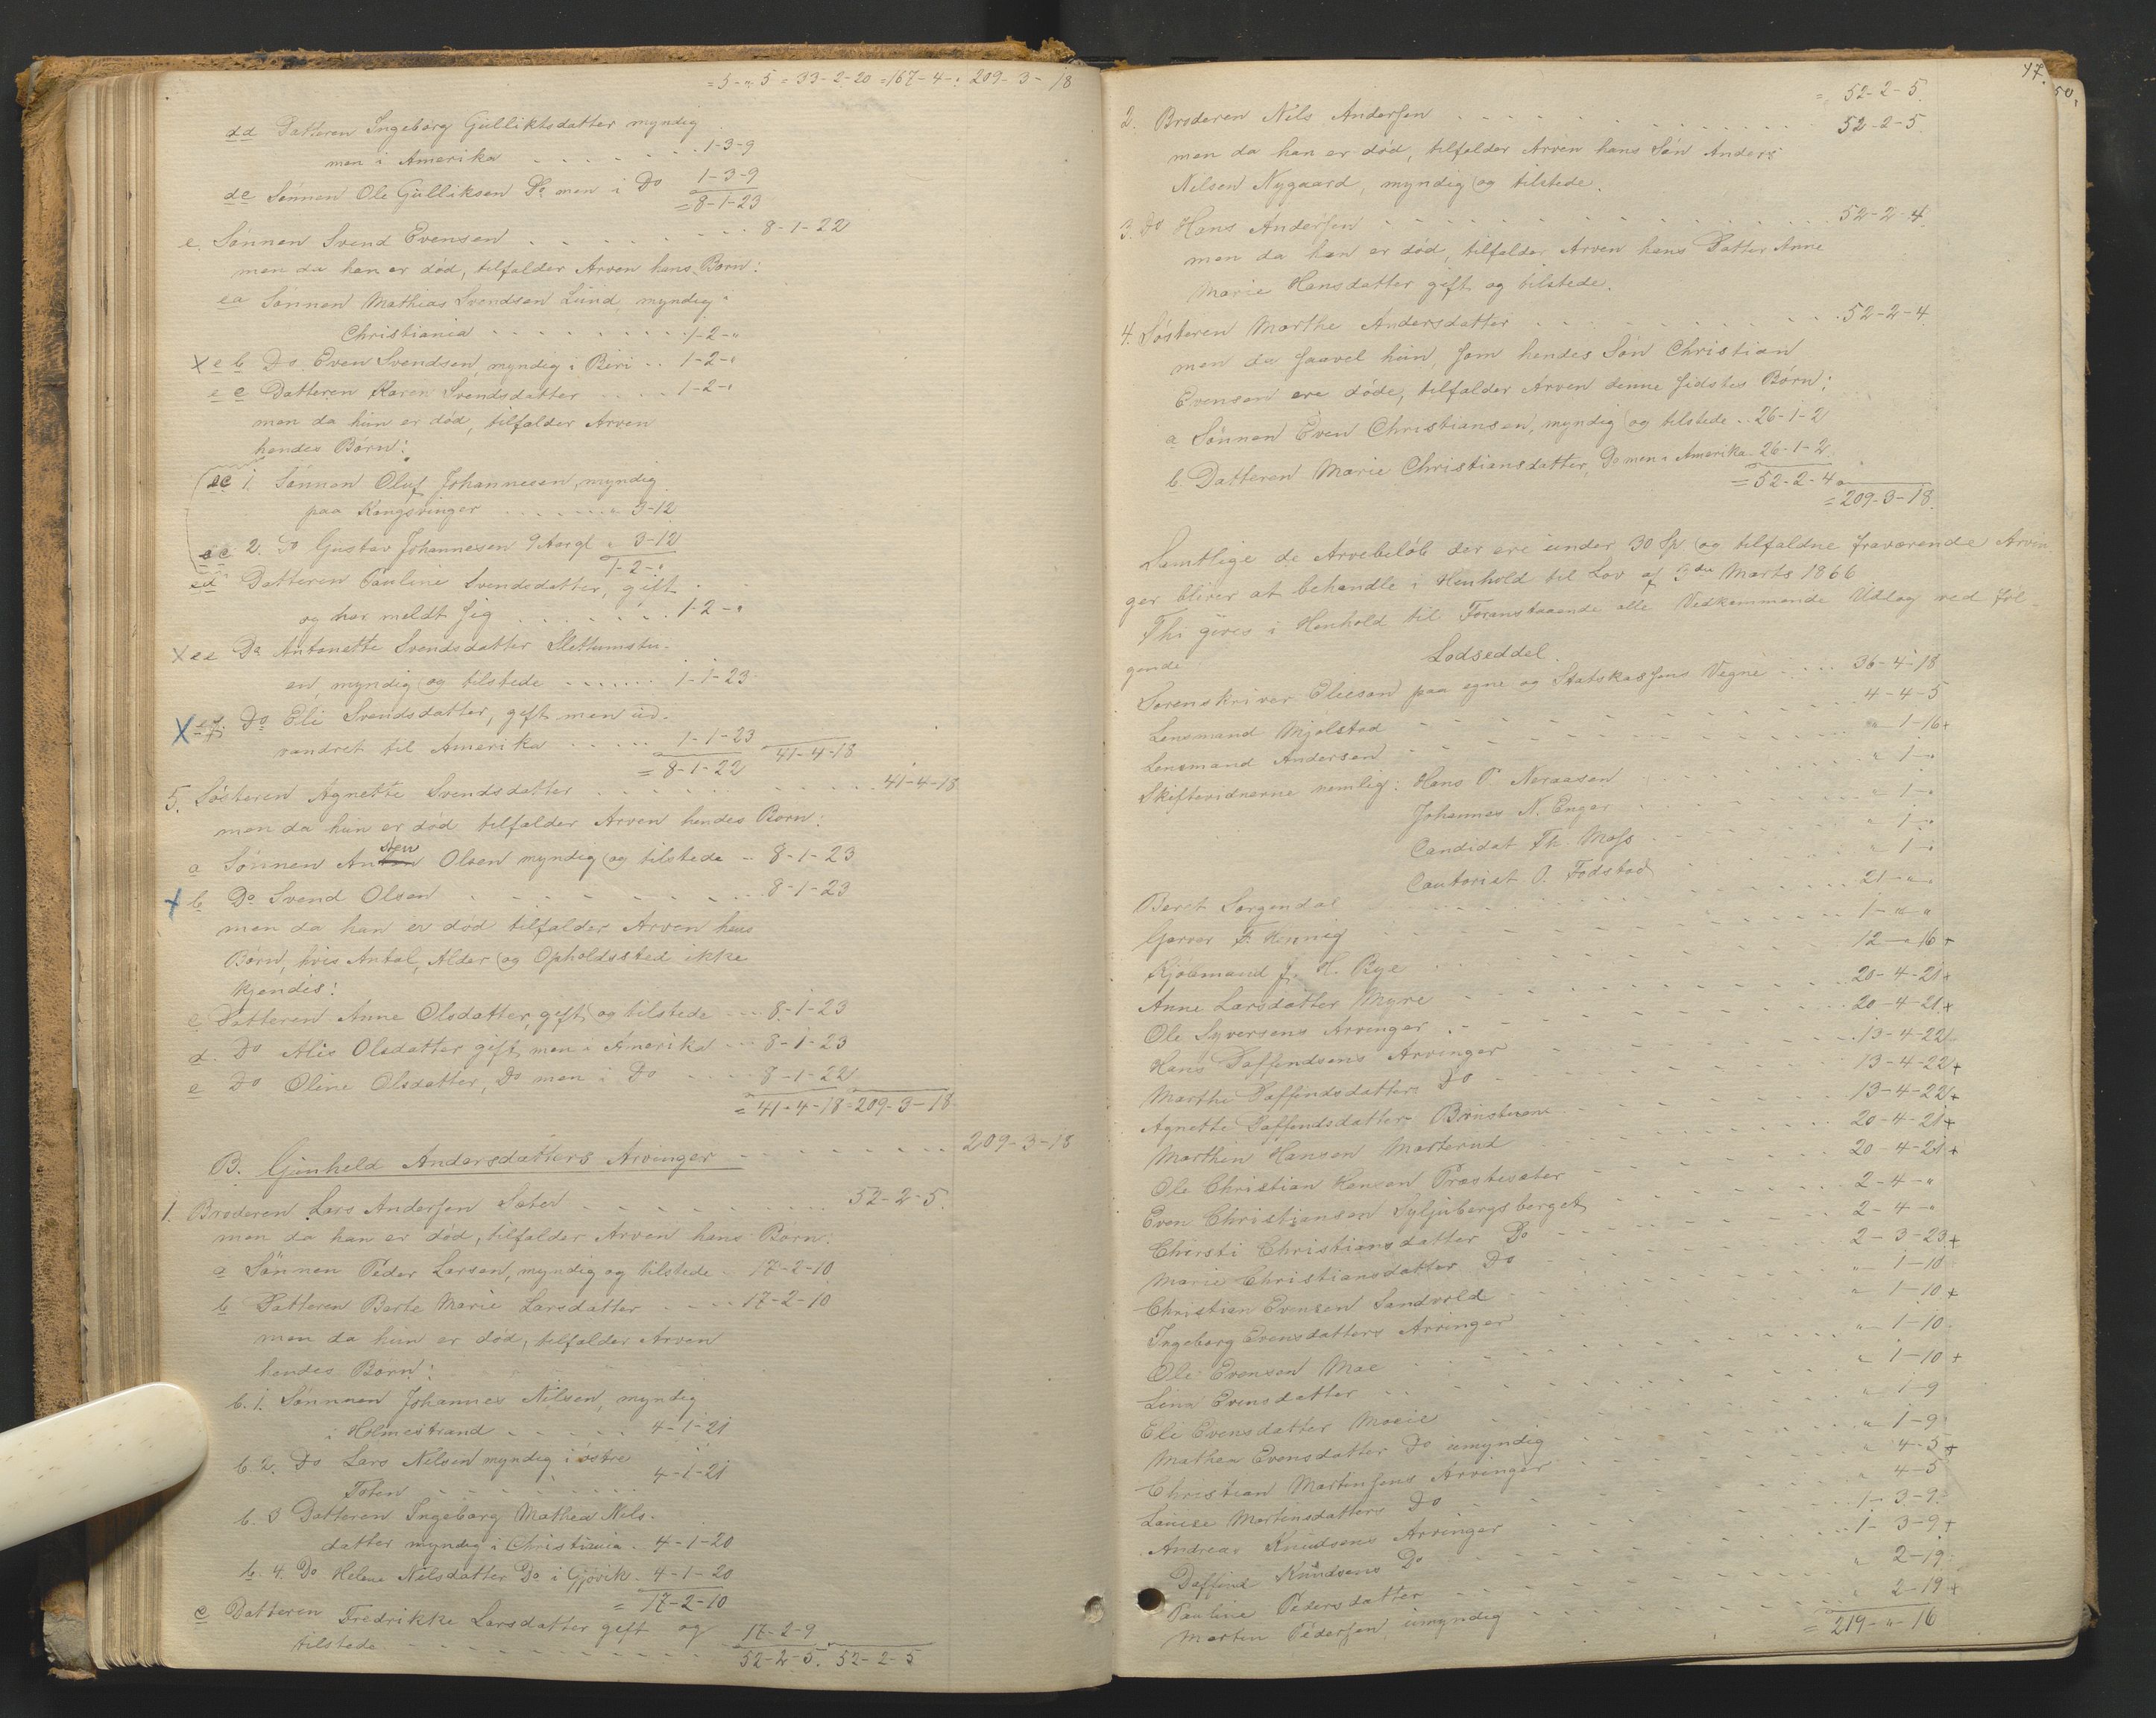 = 5-"-5 = 33-2-20 = 167-4-" 209-3-18
dd Datteren Ingeborg Gulliksdatter myndig
men i Amerika 1-3-9
de Sönnen Ole Gulliksen Do men i Do 1-3-9
= 8-1-23
e. Sönnen Svend Evensen 8-1-22
men da han er död, tilfalder Arven hans Born:
ea Sönnen Mathias Svendsen Lund, myndig
Christiania 1-2-"
x e b Do Even Svendsen, myndig i Biri 1-2-"
e c Datteren Karen Svendsdatter 1-2-"
men da hun er död, tilfalder Arven
hendes Börn:
ec 1. Sönnen Oluf Johannesen, myndig
paa Kongsvinger " 3-12
ec 2. Do Gustav Johannesen 9 Aargl. " 3-12
1-2-"
ed Datteren Pauline Svendsdatter, gift
og har meldt sig 1-2-"
x ee Do Antonette Svendsdatter Slettumstu-
en, myndig og tilstede 1-1-23
x ef. Do Eli Svendsdatter, gift men ud-
vandret til Amerika 1-1-23
= 8-1-22 41-4-18
5. Sösteren Agnette Svendsdatter 41-4-18
men da hun er död tilfalder Arven hendes Born:
a Sönnen An Olsen myndig og tilstede 8-1-23
x b Do Svend Olsen 8-1-23
men da han er död tilfalder Arven hans
Börn, hvis Antal, Alder og Opholdssted ikke
kjendes:
c Datteren Anne Olsdatter, gift og tilstede 8-1-23
d. Do Alis Olsdatter gift, men i Amerika 8-1-23
e Do Oline Olsdatter, Do men i Do 8-1-22
= 41-4-18 = 209-3-18
B. Gunhild Andersdatters Arvinger 209-3-18
1. Broderen Lars Andersen Sæter 52-2-5.
men da han er död, tilfalder Arven hans Börn:
a Sönnen Peder Larsen, myndig og tilstede 17-2-10
b Datteren Berte Marie Larsdatter 17-2-10
men da hun er död, tilfalder Arven
hendes Born:
b. 1. Sönnen Johannes Nilsen, myndig
i Holmestrand 4-1-21
b 2. Do Lars Nilsen myndig i östre
Toten 4-1-21
b. 3 Datteren Ingeborg Mathea Nils-
datter myndig i Christiania 4-1-20
b. 4. Do Helene Nilsdatter Do i Gjövik 4-1-20
= 17-2-10
c Datteren Fredrikke Larsdatter gift og
tilstede 17-2-9
52-2-5. 52-2-5
47.
50.
= 52-2-5.
2. Broderen Nils Andersen 52-2-5.
men da han er död, tilfalder Arven hans Sön Anders
Nilsen Nygaard, myndig og tilstede.
3. Do Hans Andersen 52-2-4
men da han er död, tilfalder Arven hans Datter Anne
Marie Hansdatter gift og tilstede.
4. Sösteren Marthe Andersdatter 52-2-4
men da saavel hun, som hendes Sön Christian
Evensen ere döde, tilfalder Arven denne sidstes Börn:
a Sönnen Even Christiansen, myndig og tilstede 26-1-2
b Datteren Marie Christiansdatter, Do men i Amerika 26-1-2
= 52-2-4
= 209-3-18.
Samtlige de Arvebelöb der ere under 30 Sp og tilfaldne fraværende Arvin
ger bliver at behandle i Henhold til Lov af 3die Marts 1866
Thi gives i Henhold til Foranstaaende alle Vedkommende Udlæg ved föl-
gende
Lodseddel.
Sorenskriver Eliesen paa egne og Statskassens Vegne 36-4-18
Lensmand Mjölstad 4-4-5
Lensmand Andersen " 1-16 +
Skiftevidnerne nemlig: Hans P. Neraasen " 1-"
Johannes N. Enger " 1-"
Candidat Th. Moss " 1-"
Cautorist O. Fodstad " 1-"
Beret Sorgendal 21-"-"
Garver F. Hennig 1-"-"
Kjöbmand J. H. Bye 12-"-16 +
Anne Larsdatter Myre 20-4-21 +
Ole Syversens Arvinger 20-4-21 +
Hans Daffindsens Arvinger 13-4-22
Marthe Daffindsdatters Do 13-4-22 +
Agnette Daffindsdatter 13-4-22 +
Marthin Hansen Marterud 20-4-21 +
Ole Christian Hansen Præstesæter 20-4-21 +
Even Christiansen Syljubergsberget 2-4-"
Chersti Christiansdatter Do 2-4-"
Marie Christiansdatter Do 2-3-23 +
Christian Evensen Sandvold " 1-10
Ingeborg Evensdatters Arvinger " 1-10 +
Ole Evensen Moe " 1-10
Lina Evensdatter " 1-10 +
Eli Evensdatter Moeie " 1-9
Mathea Evensdatter Do umyndig " 1-9
Christian Martinsens Arvinger " 4-5 +
Louise Martinsdatters Do " 4-5
Andreas Knudsens Arvinger 1-3-9.
Daffind Knudsens Do 1-3-9 +
Pauline Pedersdatter " 2-19
Martin Pedersen umyndig " 2-19 +
= 219-"-16